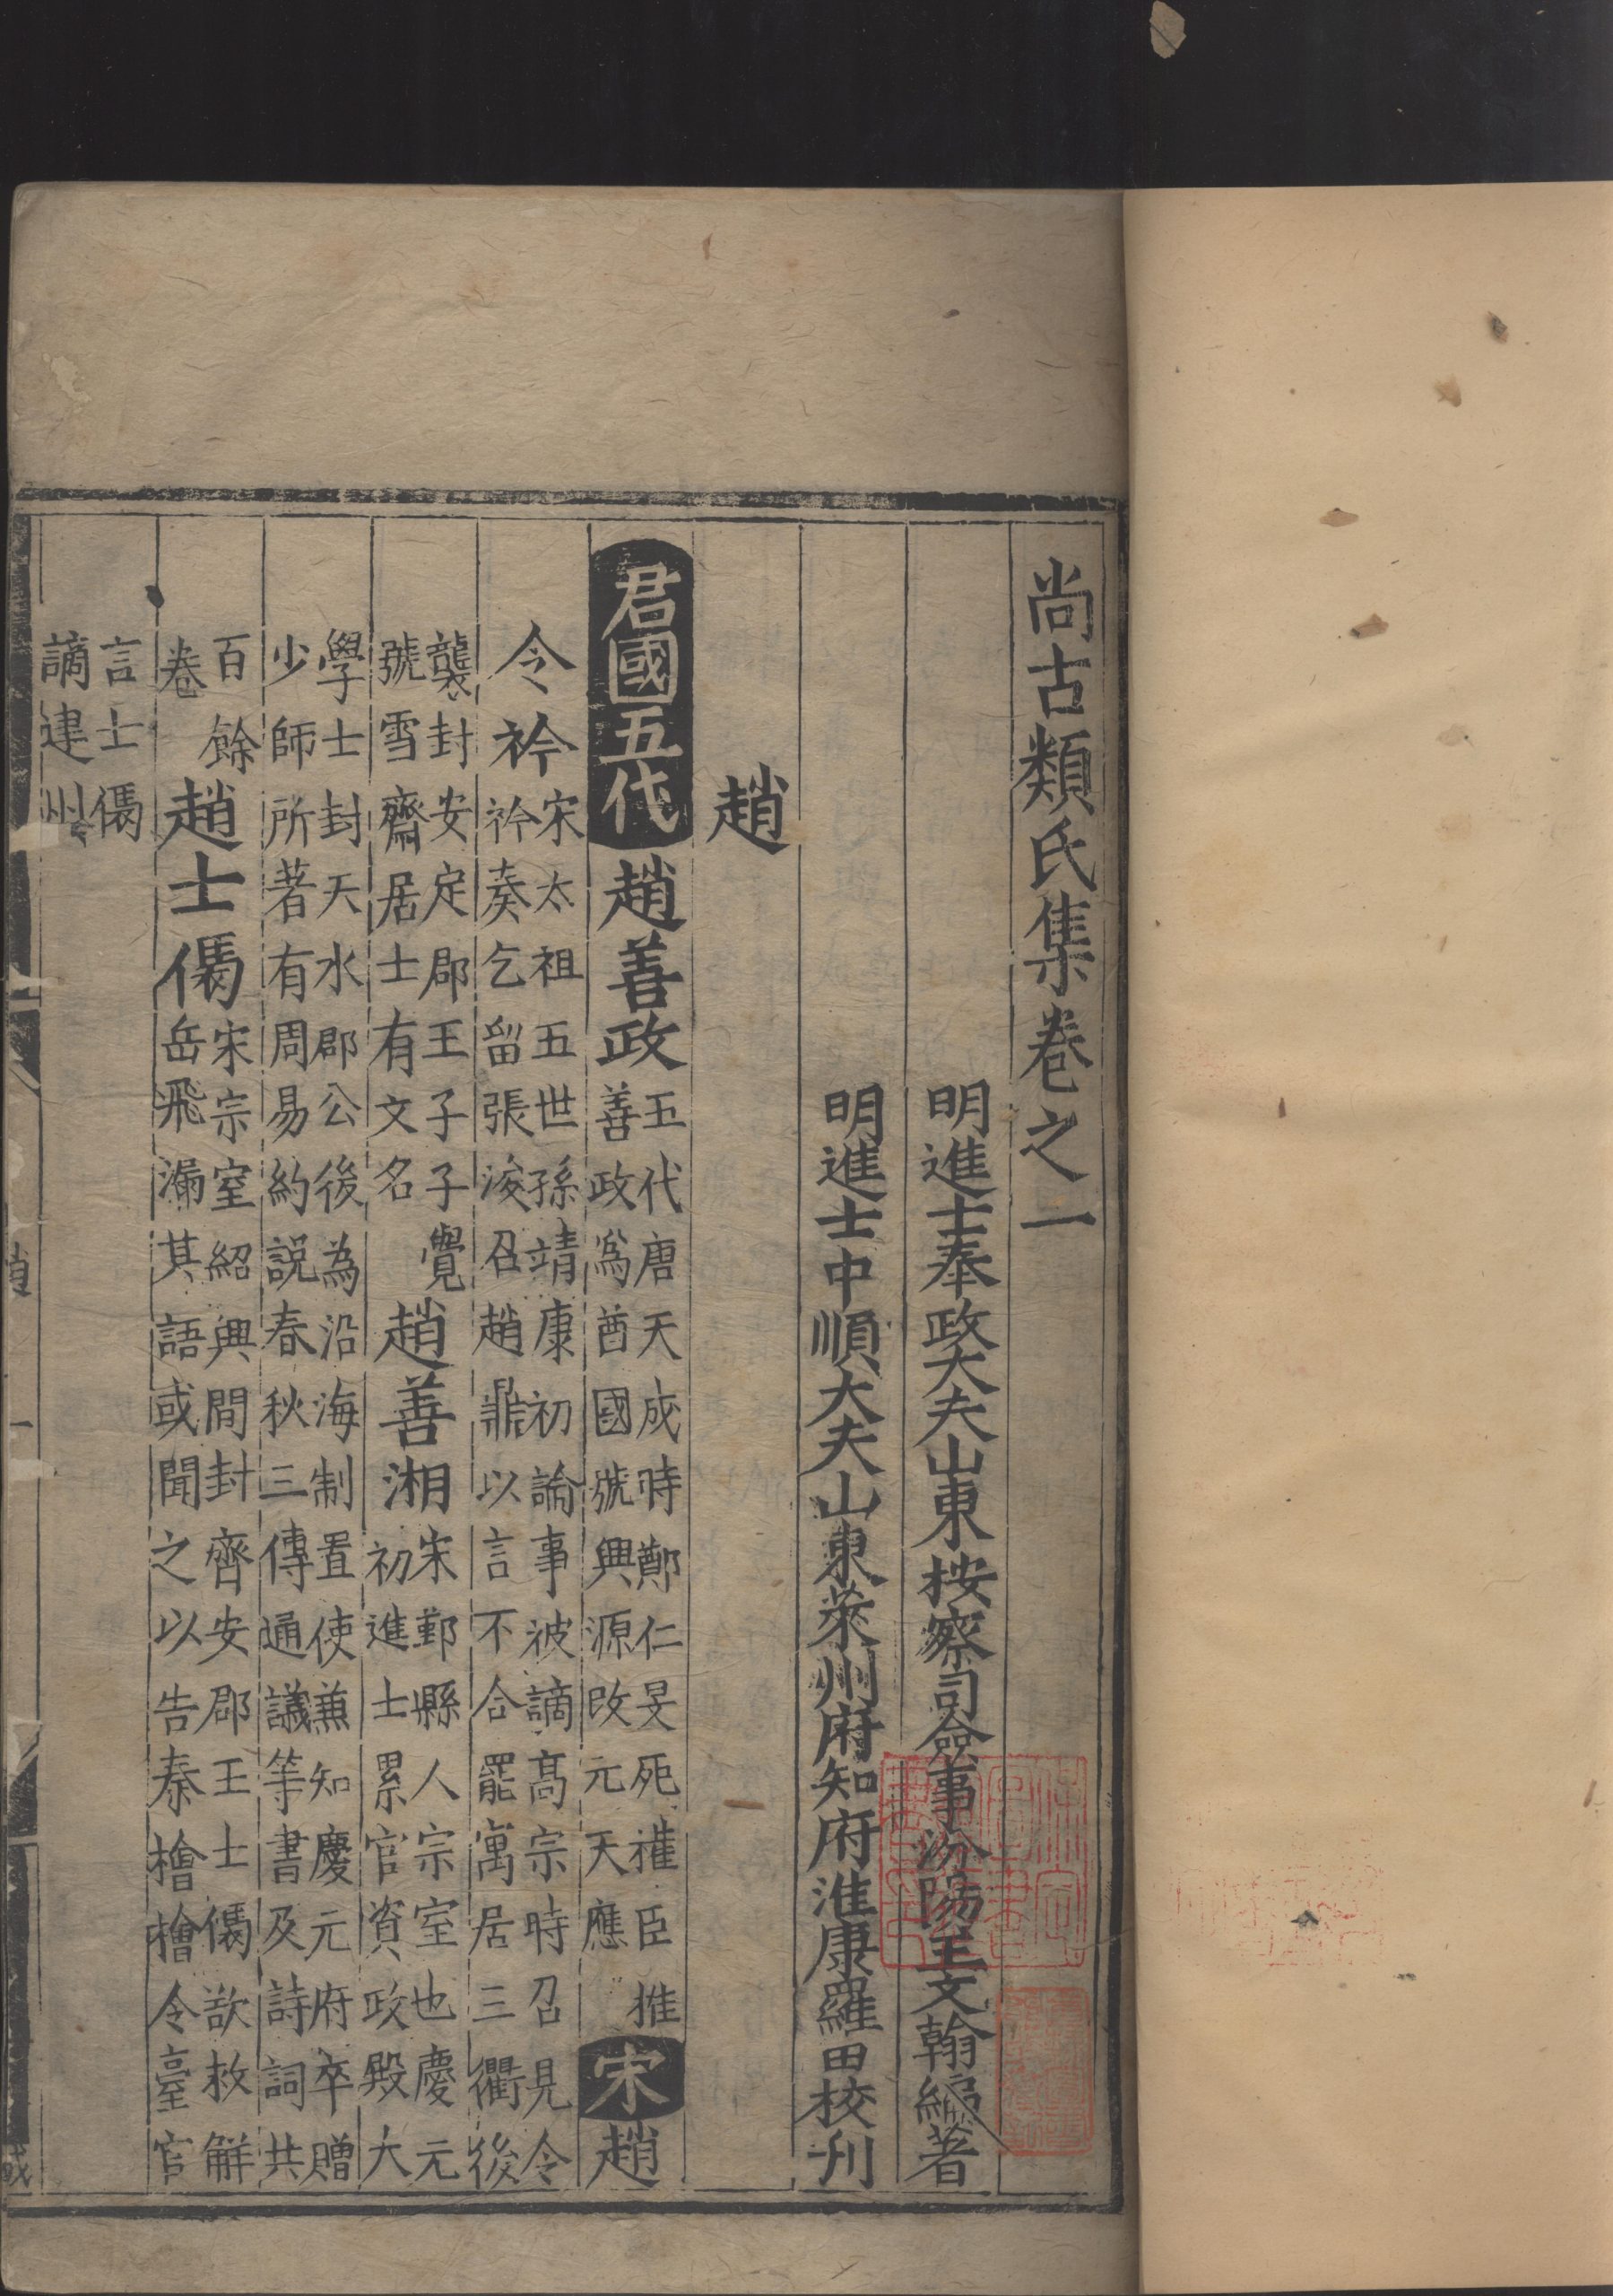 尚古類氏集卷之一
明進士奉政大夫山東按察司僉事汾陽王文翰編著
明進士中順大夫山東萊州府知府淮康羅田校刊
趙
君國五代趙善政五代唐天成時鄭仁旻死權臣推善政爲酋國號興源改元天應宋趙
令衿宋太祖五世孫靖康初論事被謫高宗時召見令衿奏乞留張浚召趙鼎以言不合罷寓居三衢後
襲封安定郡王子子覺號雪齋居士有文名趙善湘宋鄞縣人宗室也慶元初進士累官資政殿大
學士封天水郡公後為沿海制置使兼知慶元府卒贈少師所著有周易約說春秋三傳通議等書及詩詞共
百餘卷趙士㒟宋宗室紹興間封齊安郡王士㒟欲救解岳飛漏其語或聞之以告秦檜檜令臺官
言士㒟謫建州